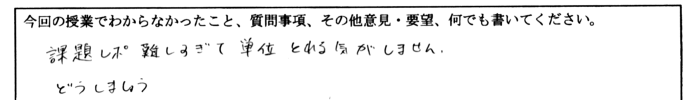 今回の授業でわからなかったこと、質問事項、その他意見・要望、何でも書いてください。
課題レポ難しすぎて単位とれる気がしません.
どうしましょう